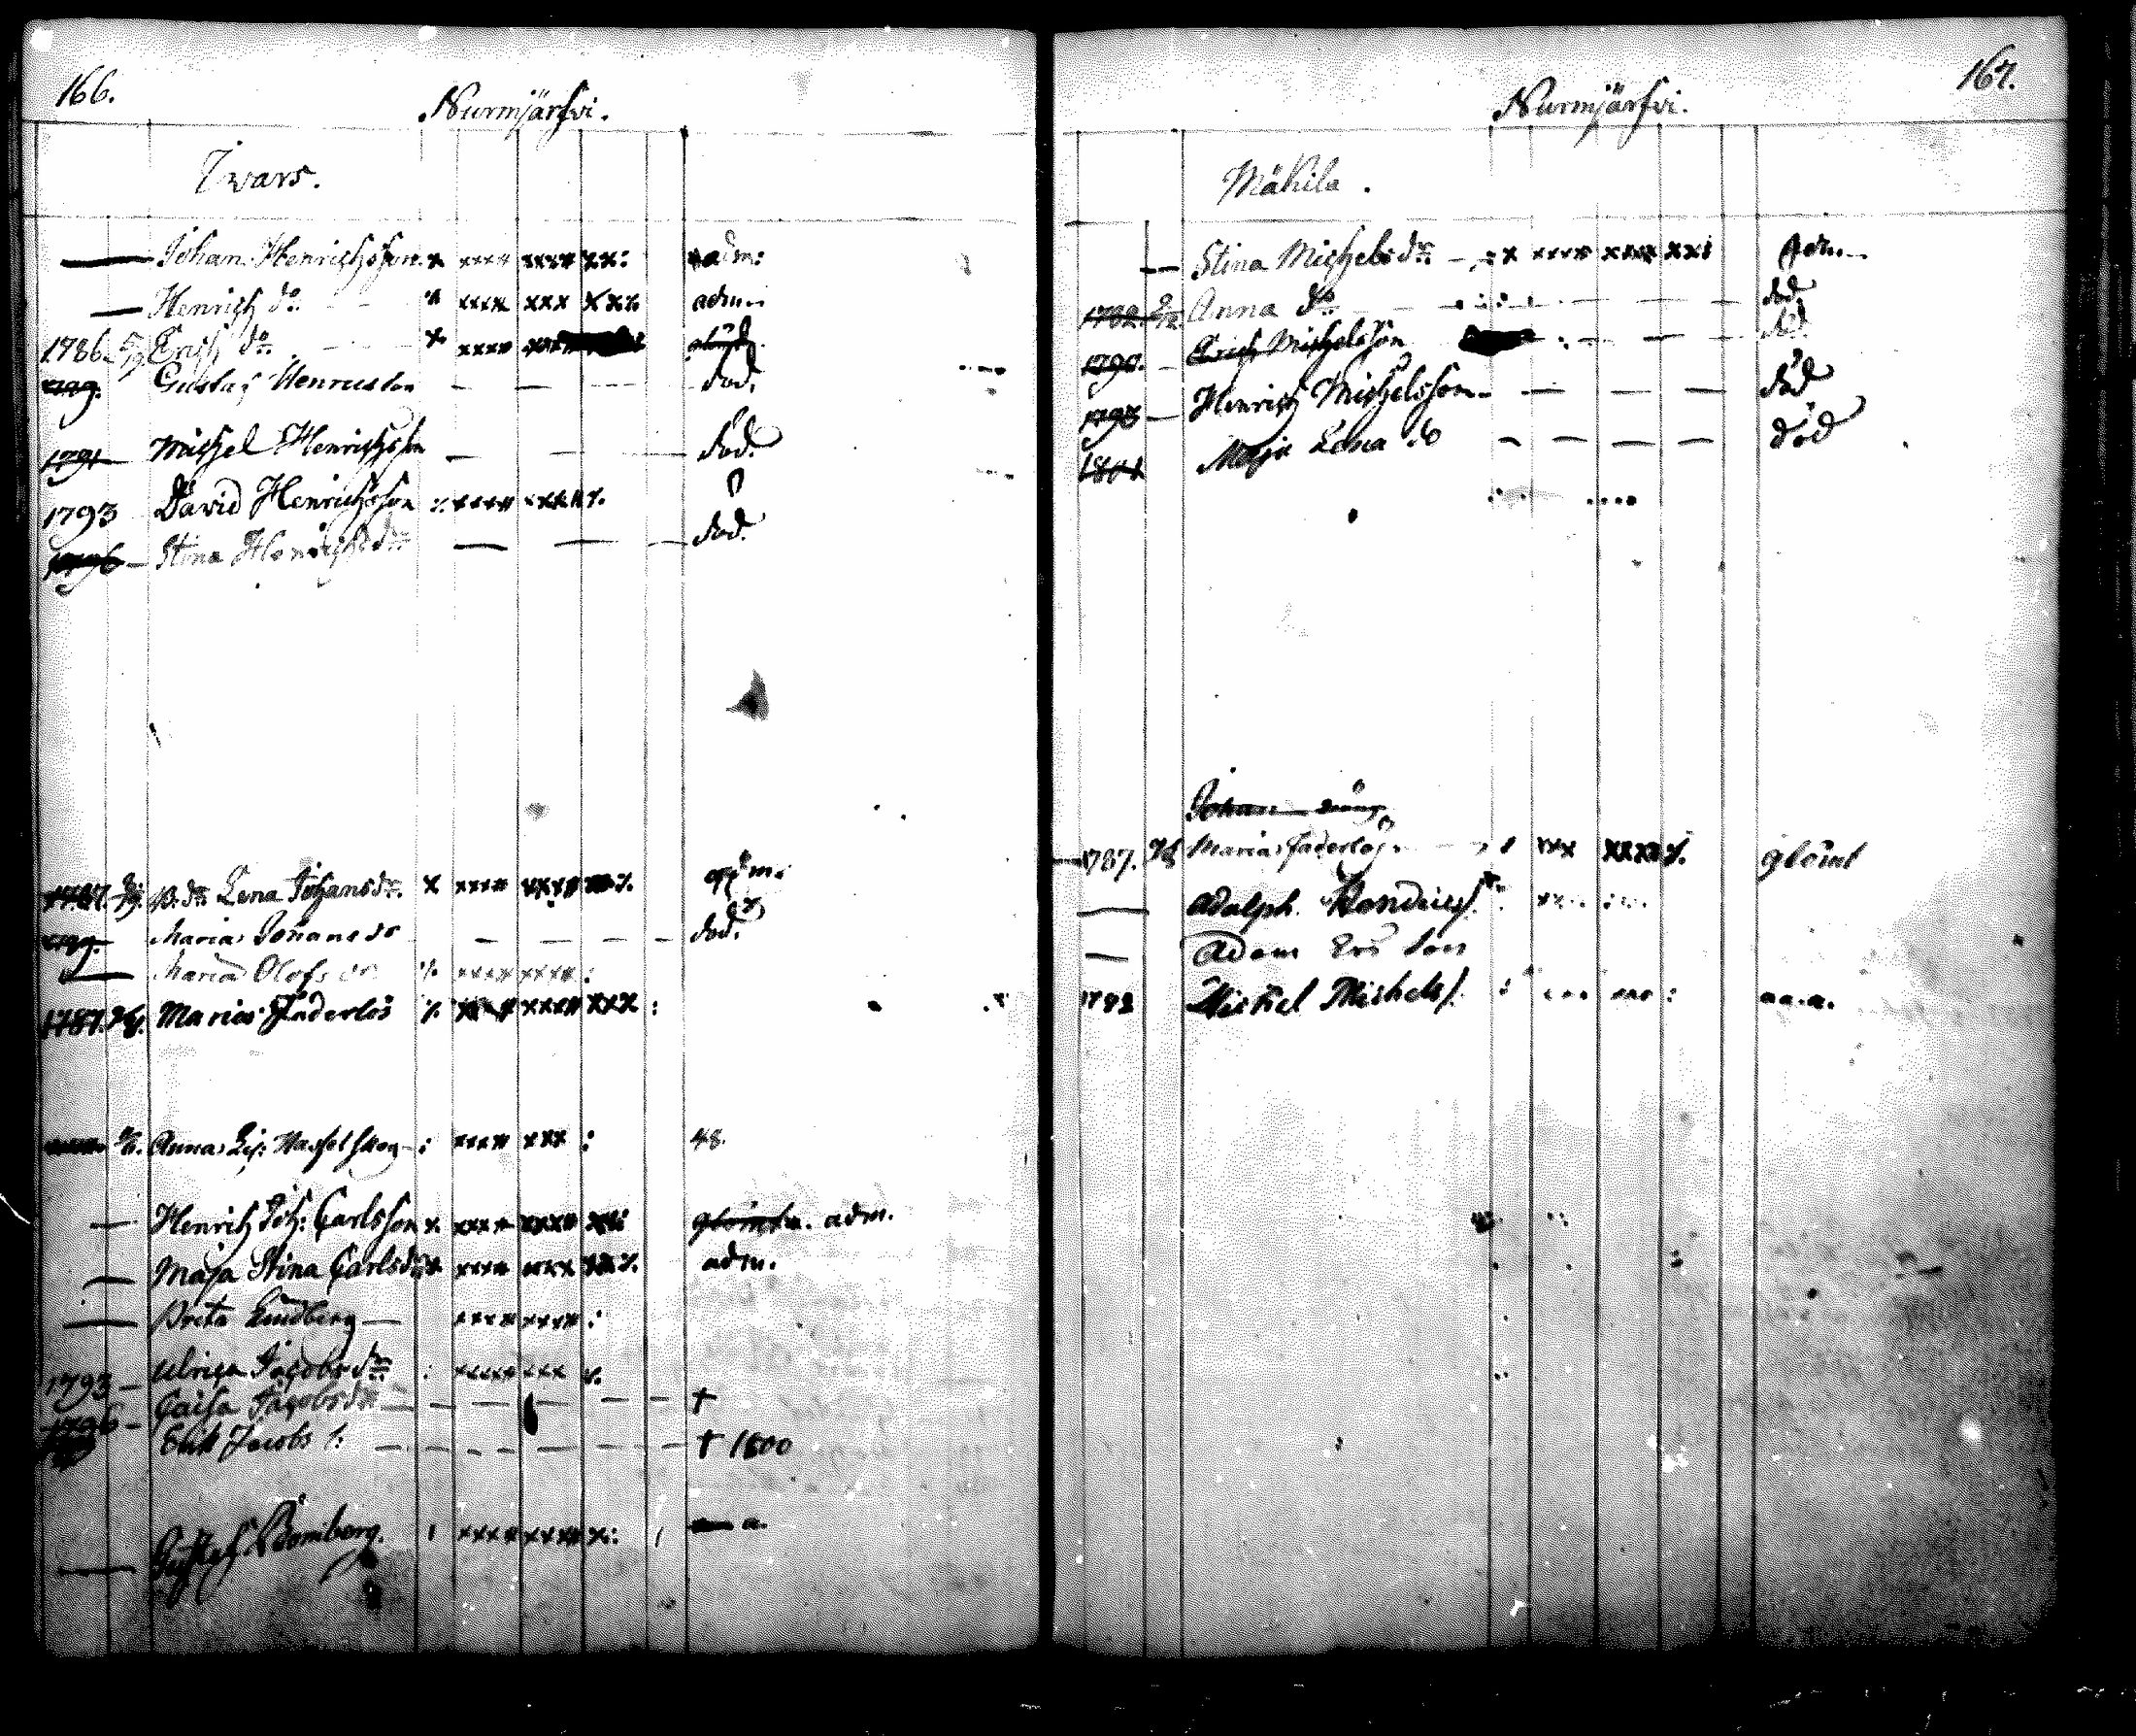 166.
Nurmjärfvi.
Ivars.
Johan Henrichsson x xxxx xxxx xx: adm:
Henrich do xxxx xxx xxx adm:
1786. Erich do x xxxx
Gustaf Henricsson — — — död.
1791 Michel Henrichsson — — — död.
1793 David Henrichsson xxxx xxxx
1796 — Stina Henrichsdr — — — död.
1787. Lena Johansdr. x xxxx xxxx
Maria Johansdr — — — — död.
Maria Olofsdr xxxx xxxx :
1787. Maria Faderlös xxxx xxxx xxx :
Anna Lis: Hasselskog : xxxx xxx : 48.
Henrich Joh: Carlsson x. xxxx xxxx adm.
Maja Stina Carlsdr xxxx xxxx adm.
Brita Lindberg — xxxx xxxx :
1793 — Ulrica Jacobsdr : xxxx xxx
1796 — Caisa Jacobsdr — — — — †
Erik Jacobs s. — — — — † 1800
Gustaf Blomberg. xxxx xxxx x: a.
167.
Nurmjärfvi.
Mäkilä.
Stina Michelsdr xxxx xxxx xx adm.
1782. Anna do — — död.
1790. Erich Michelsson — — död
Henrich Michelsson — — — — död
1801 Maja Lena do — — — — död
Johan
1787. Maria Faderlös xxx xxxx glömt
Adolph
Adam Ers Son
1792 Michel Michels s. a.a.a.